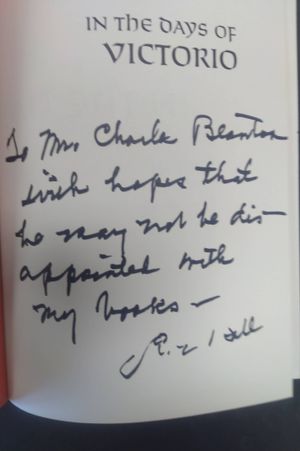 IN THE DAYS OF
VICTORIO
To Mr. Charles Blanton
with hopes that
he may not be dis-
appointed with
my books —